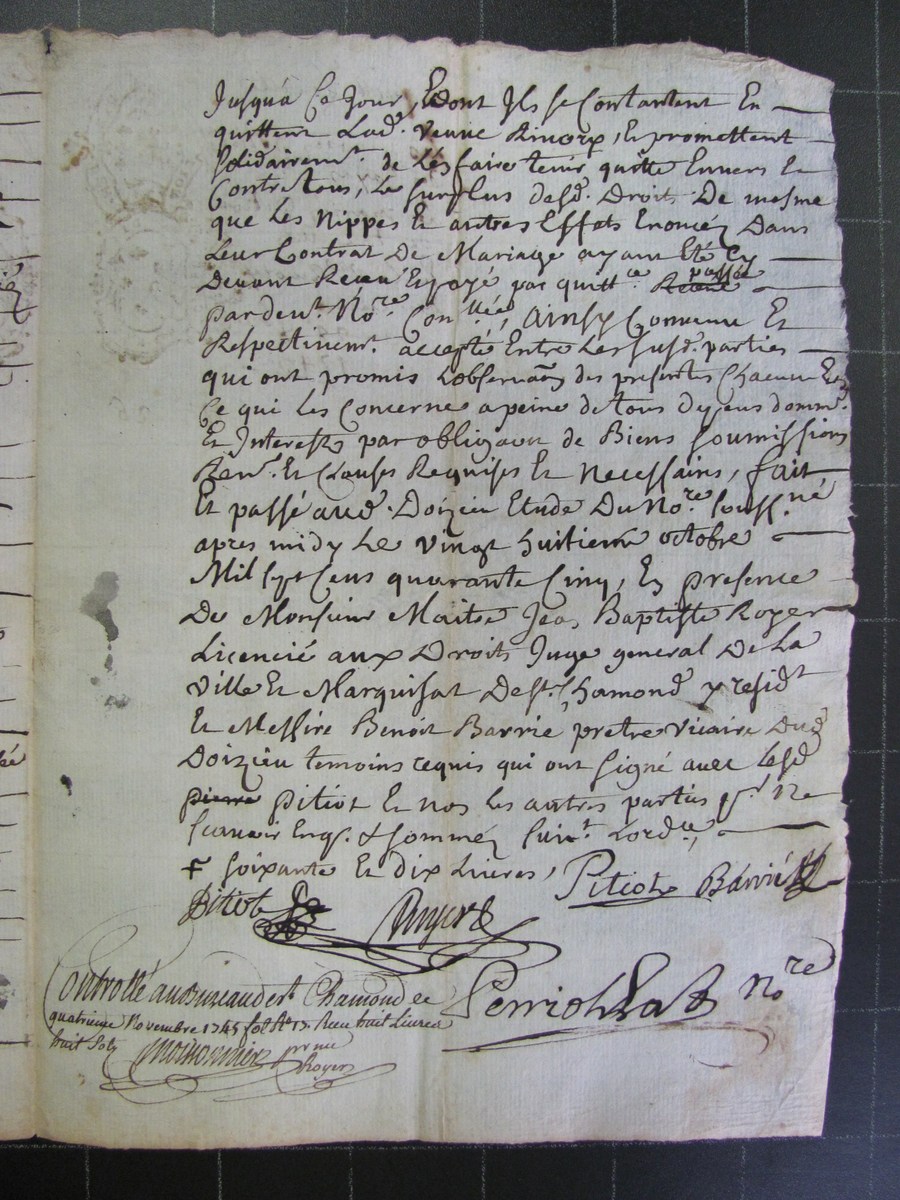 Jusqua Ce Jour, Et dont Ils se Contantent En
quittent Lad.e veuve Rivorx, Et promettent
solidairem.t de Les faire tenir quitte Envers Et
Contre tous, Le surplus desd. Droits De mesme
que Les Nippes Et autres Effets Enoncéz Dans
Leur Contrat De Mariage ayant Eté Cy
Devant Receu Et payé par quitt.ce passée
pardev.t No.re Con.lléé, Ainsy Convenu Et
Respectivem.t accepté Entre Les susd. parties
qui ont promis L'observaôn des presentes Chacun En
Ce qui Les Concerne a peine de tous depens domm.
Et Interests par obligaôn de Biens soumissions
Ren.t Et Clauses Requises Et Necessaires, fait
Et passé aud. Doizieu Etude Du No.re souss.né
apres midy Le vingt huitieme octobre
Mil sept Cens quarante Cinq, En presence
De Monsieur Maitre Jean Baptiste Royer
Licencié aux Droits Juge general De La
ville Et Marquisat De St. Chamond y resid.t
Et Messire Benoit Barrie pretre vicaire Dud.
Doizieu temoins requis qui ont signé avec Lesd.
pierre Pitiot Et nos les autres parties p.r Ne
scavoir Enq.s & sommés suiv.t Lord.ce,
+ soixante Et dix Livres, Pitiot Barrié
Pitiot Royer
Controllé au Bureau de St. Chamond ce Perriollat No.re
quatrieme Novembre 1745 fol. 17. Receu huit Livres
huit sols
Royer